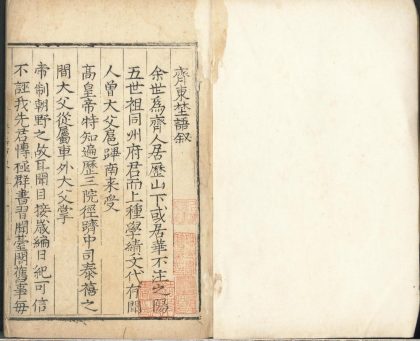 齊東埜語叙
余世為齊人居歷山下或居華不注之陽
五世祖同州府君而上種學績文代有聞
人曾大父扈蹕南来受
高皇帝特知遍歷三院徑躋中司泰禧之
間大父從屬車外大父掌
帝制朝野之故耳聞目接嵗編日紀可信
不誣我先君博極群書習聞臺閣舊事每